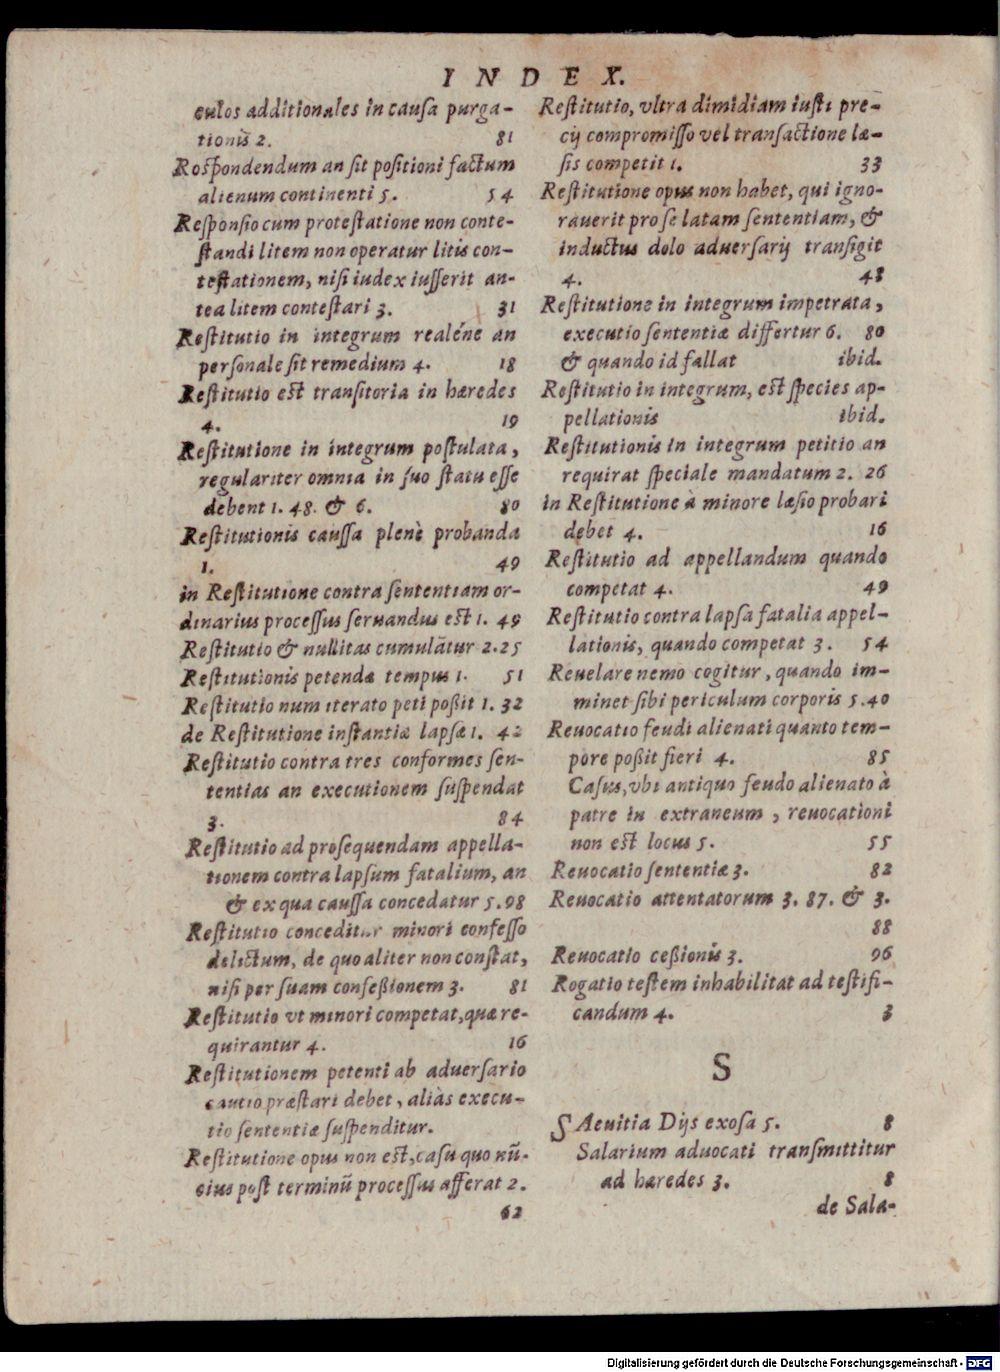 INDEX.
culos additionales in cauſa purga-
tionis 2. 81
Roſpondendum an ſit poſitioni factum
alienum continenti 5. 54
Reſponſio cum proteſtatione non conte-
ſtandi litem non operatur litis con-
teſtationem, niſi iudex iuſſerit an-
tea litem conteſtari 3. 31
Reſtitutio in integrum realéne an
perſonale ſit remedium 4. 18
Reſtitutio eſt tranſitoria in hæredes
4. 19
Reſtitutione in integrum poſtulata,
regulariter omnia in ſuo ſtatu eſſe
debent 1. 48. & 6. 80
Reſtitutionis cauſſa plenè probanda
1. 49
in Reſtitutione contra ſententiam or-
dinarius proceſſus ſeruandus eſt 1. 49
Reſtitutio & nullitas cumulātur 2.25
Reſtitutionis petendæ tempus 1. 51
Reſtitutio num iterato peti poßit 1. 32
de Reſtitutione inſtantiæ lapſæ 1. 42
Reſtitutio contra tres conformes ſen-
tentias an executionem ſuſpendat
3. 84
Reſtitutio ad proſequendam appella-
tionem contra lapſum fatalium, an
& ex qua cauſſa concedatur 5.98
Reſtitutio conceditur minori confeſſo
delictum, de quo aliter non conſtat,
niſi per ſuam confeßionem 3. 81
Reſtitutio vt minori competat, quæ re-
quirantur 4. 16
Reſtitutionem petenti ab aduerſario
cautio præſtari debet, aliàs execu-
tio ſententiæ ſuſpenditur.
Reſtitutione opus non eſt, caſu quo nū-
cius poſt terminū proceſſus afferat 2.
62
Reſtitutio, vltra dimidiam iuſti pre-
cij compromiſſo vel tranſactione læ-
ſis competit 1. 33
Reſtitutione opus non habet, qui igno-
rauerit pro ſe latam ſententiam, &
inductus dolo aduerſarij tranſigit
4. 48
Reſtitutione in integrum impetrata,
executio ſententiæ differtur 6. 80
& quando id fallat ibid.
Reſtitutio in integrum, eſt ſpecies ap-
pellationis ibid.
Reſtitutionis in integrum petitio an
requirat ſpeciale mandatum 2. 26
in Reſtitutione à minore læſio probari
debet 4. 16
Reſtitutio ad appellandum quando
competat 4. 49
Reſtitutio contra lapſa fatalia appel-
lationis, quando competat 3. 54
Reuelare nemo cogitur, quando im-
minet ſibi periculum corporis 5.40
Reuocatio feudi alienati quanto tem-
pore poßit fieri 4. 85
Caſus, vbi antiquo feudo alienato à
patre in extraneum, reuocationi
non eſt locus 5. 55
Reuocatio ſententiæ 3. 82
Reuocatio attentatorum 3. 87. & 3.
88
Reuocatio ceßionis 3. 96
Rogatio teſtem inhabilitat ad teſtifi-
candum 4. 3
S
SAeuitia Dijs exoſa 5. 8
Salarium aduocati tranſmittitur
ad hæredes 3. 8
de Sala-
Digitalisierung gefördert durch die Deutsche Forschungsgemeinschaft - DFG